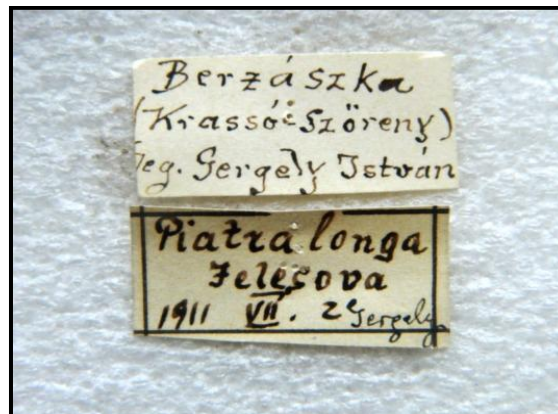 Berzászka
(Krassó-Szöreny)
leg. Gergely István
Piatra longa
Jelesova
1911 VII. 2 Gergely